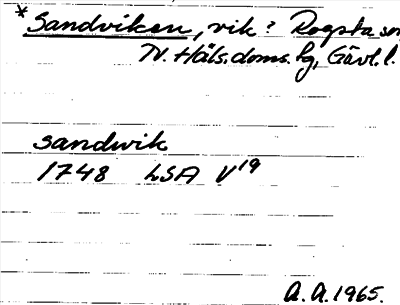 *Sandviken, vik? Rogsta sn
N. Häls. doms. hg, Gävl. l.
sandwik
1748 LSA V19
A.A. 1965.